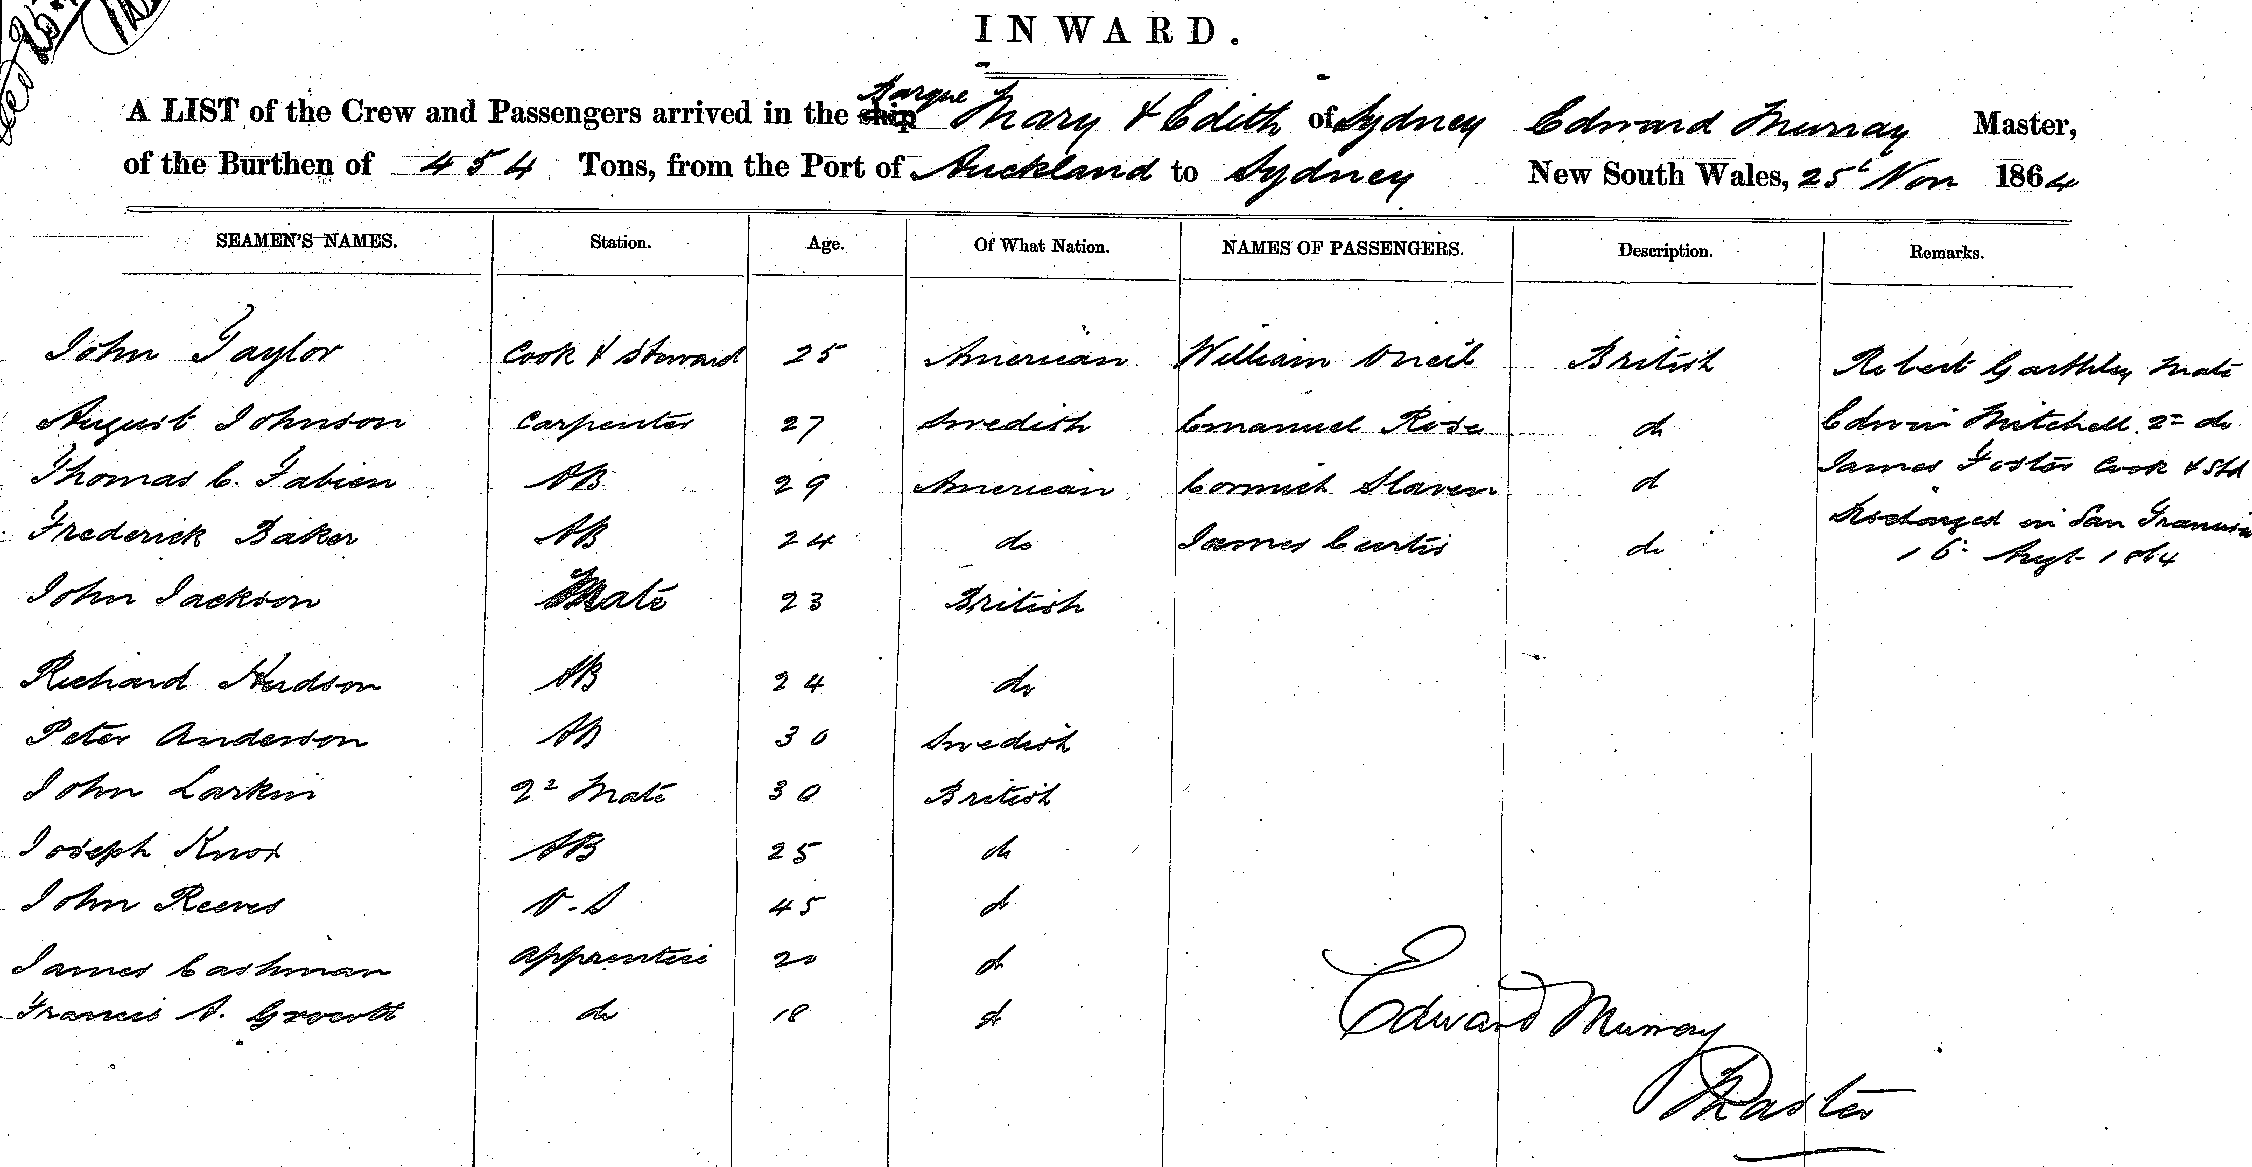 INWARD.
A LIST of the Crew and Passengers arrived in the ship Barque Mary & Edith of Sydney Edward Murray Master,
of the Burthen of 454 Tons, from the Port of Auckland to Sydney New South Wales, 25t Nov 1864
SEAMEN'S NAMES. Station. Age. Of What Nation. NAMES OF PASSENGERS. Description. Remarks.
John Taylor Cook & Steward 25 American William Oneil British Robert Garthley Mate
August Johnson Carpenter 27 Swedish Emanuel Rose do Edwin Mitchell 2d do
Thomas C. Fabien AB 29 American Cormick Slaven do James Foster Cook & Std
Frederick Baker AB 24 do James Curtis do Discharged in San Francisco
16th Augt 1864
John Jackson Mate 23 British
Richard Hudson AB 24 do
Peter Anderson AB 30 Swedish
John Larkin 2d Mate 30 British
Joseph Knox AB 25 do
John Reeves O.S 45 do
James Cashman apprentice 20 do
Francis A. do 18 do
Edward Murray
Master